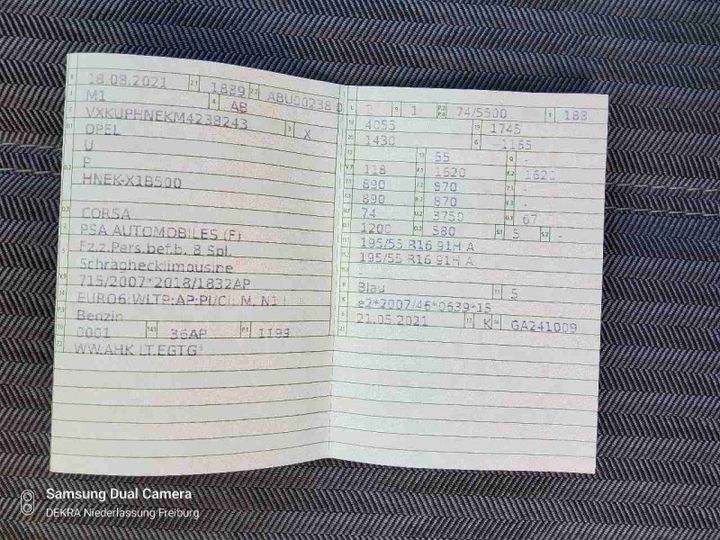 18.08.2021 2.1 1889 2.2 ABU00238 0
M1 4 AB
VXKUPHNEKM4238243 3 X
OPEL
U
P
HNEK-X1B500
CORSA
PSA AUTOMOBILES (F)
Fz.z.Pers.bef.b. 8 Spl.
Schräghecklimousine
715/2007*2018/1832AP
EURO6;WLTP;AP;PI/CI; M, N1 I
Benzin
0001 36AP P.1 1199
WW.AHK LT.EGTG*
9 1 P.2 P.4 74/5500 T 188
4055 19 1745
1430 G 1165
55 Q -
118 1620 1620
890 870 -
890 870 -
74 3750 67
1200 580 S.1 5 S.2 -
195/55 R16 91H A
195/55 R16 91H A
Blau 5
e2*2007/46*0639*15
21.05.2021 K GA241009
Samsung Dual Camera
DEKRA Niederlassung Freiburg